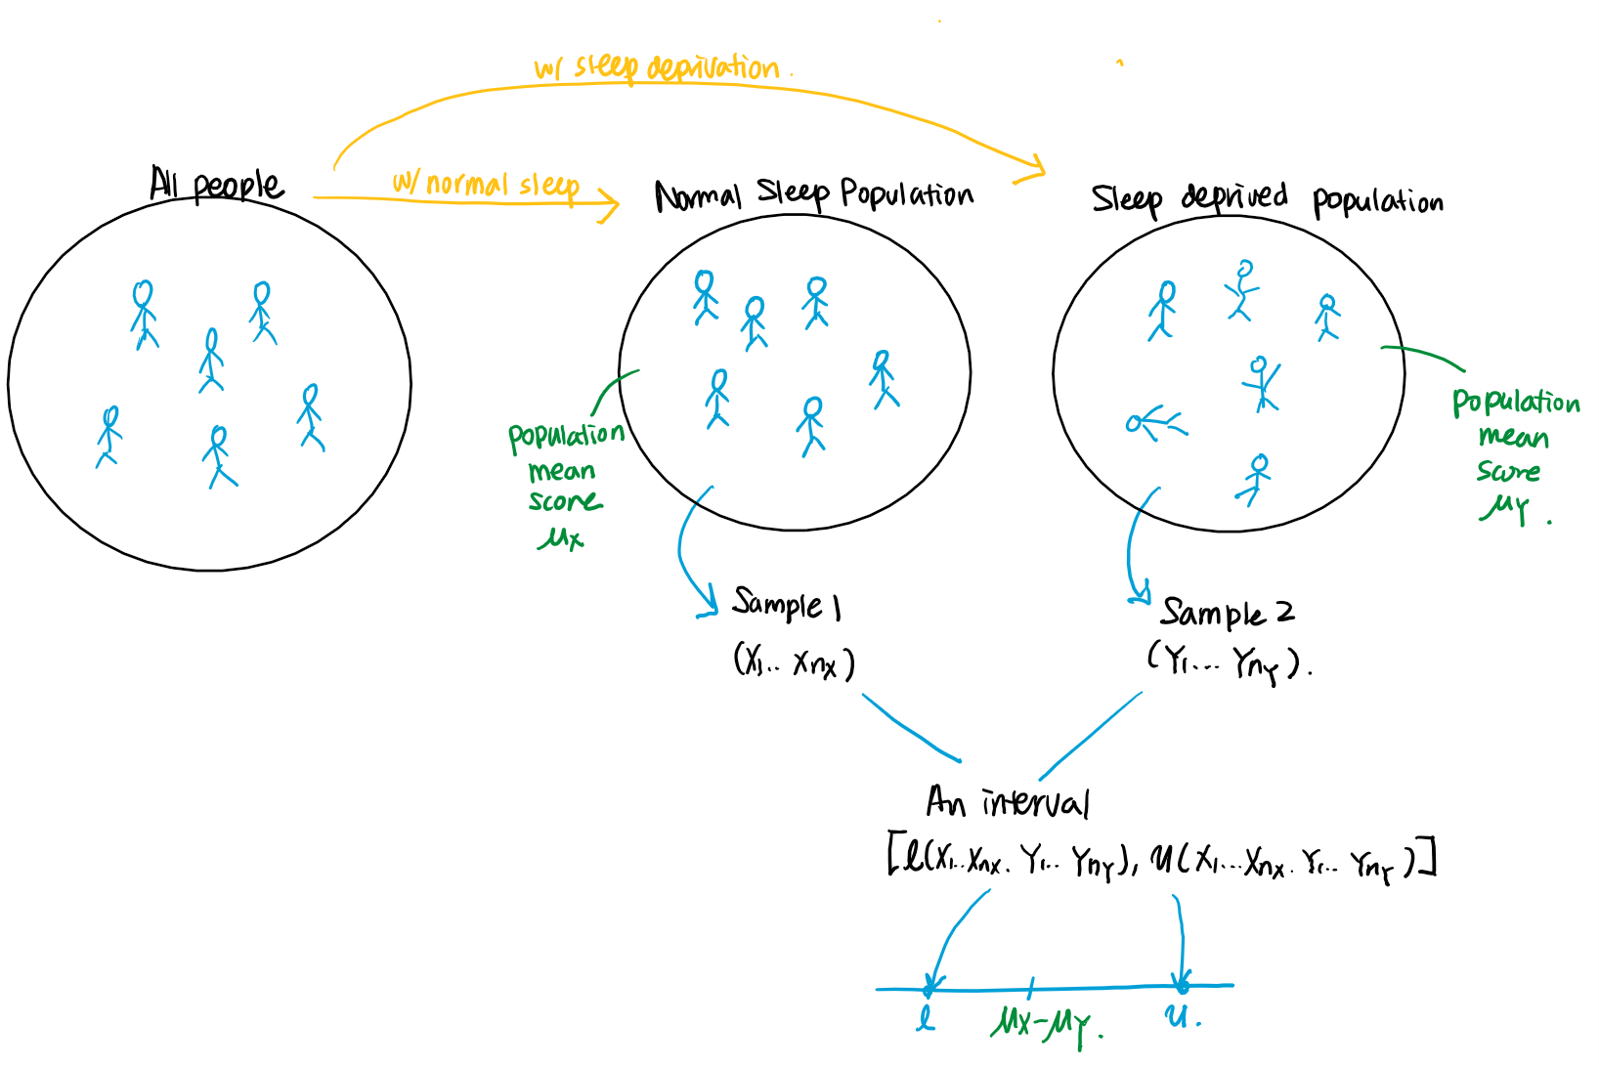 w/ sleep deprivation.
All people
w/ normal sleep
Normal Sleep Population
Sleep deprived population
population
mean
score
μx
population
mean
score
μY.
Sample 1
(X1.. XnX)
Sample 2
(Y1... YnY).
An interval
[l(X1..XnX. Y1.. YnY), u(X1...XnX. Y1... YnY)]
l
μX-μY.
u.